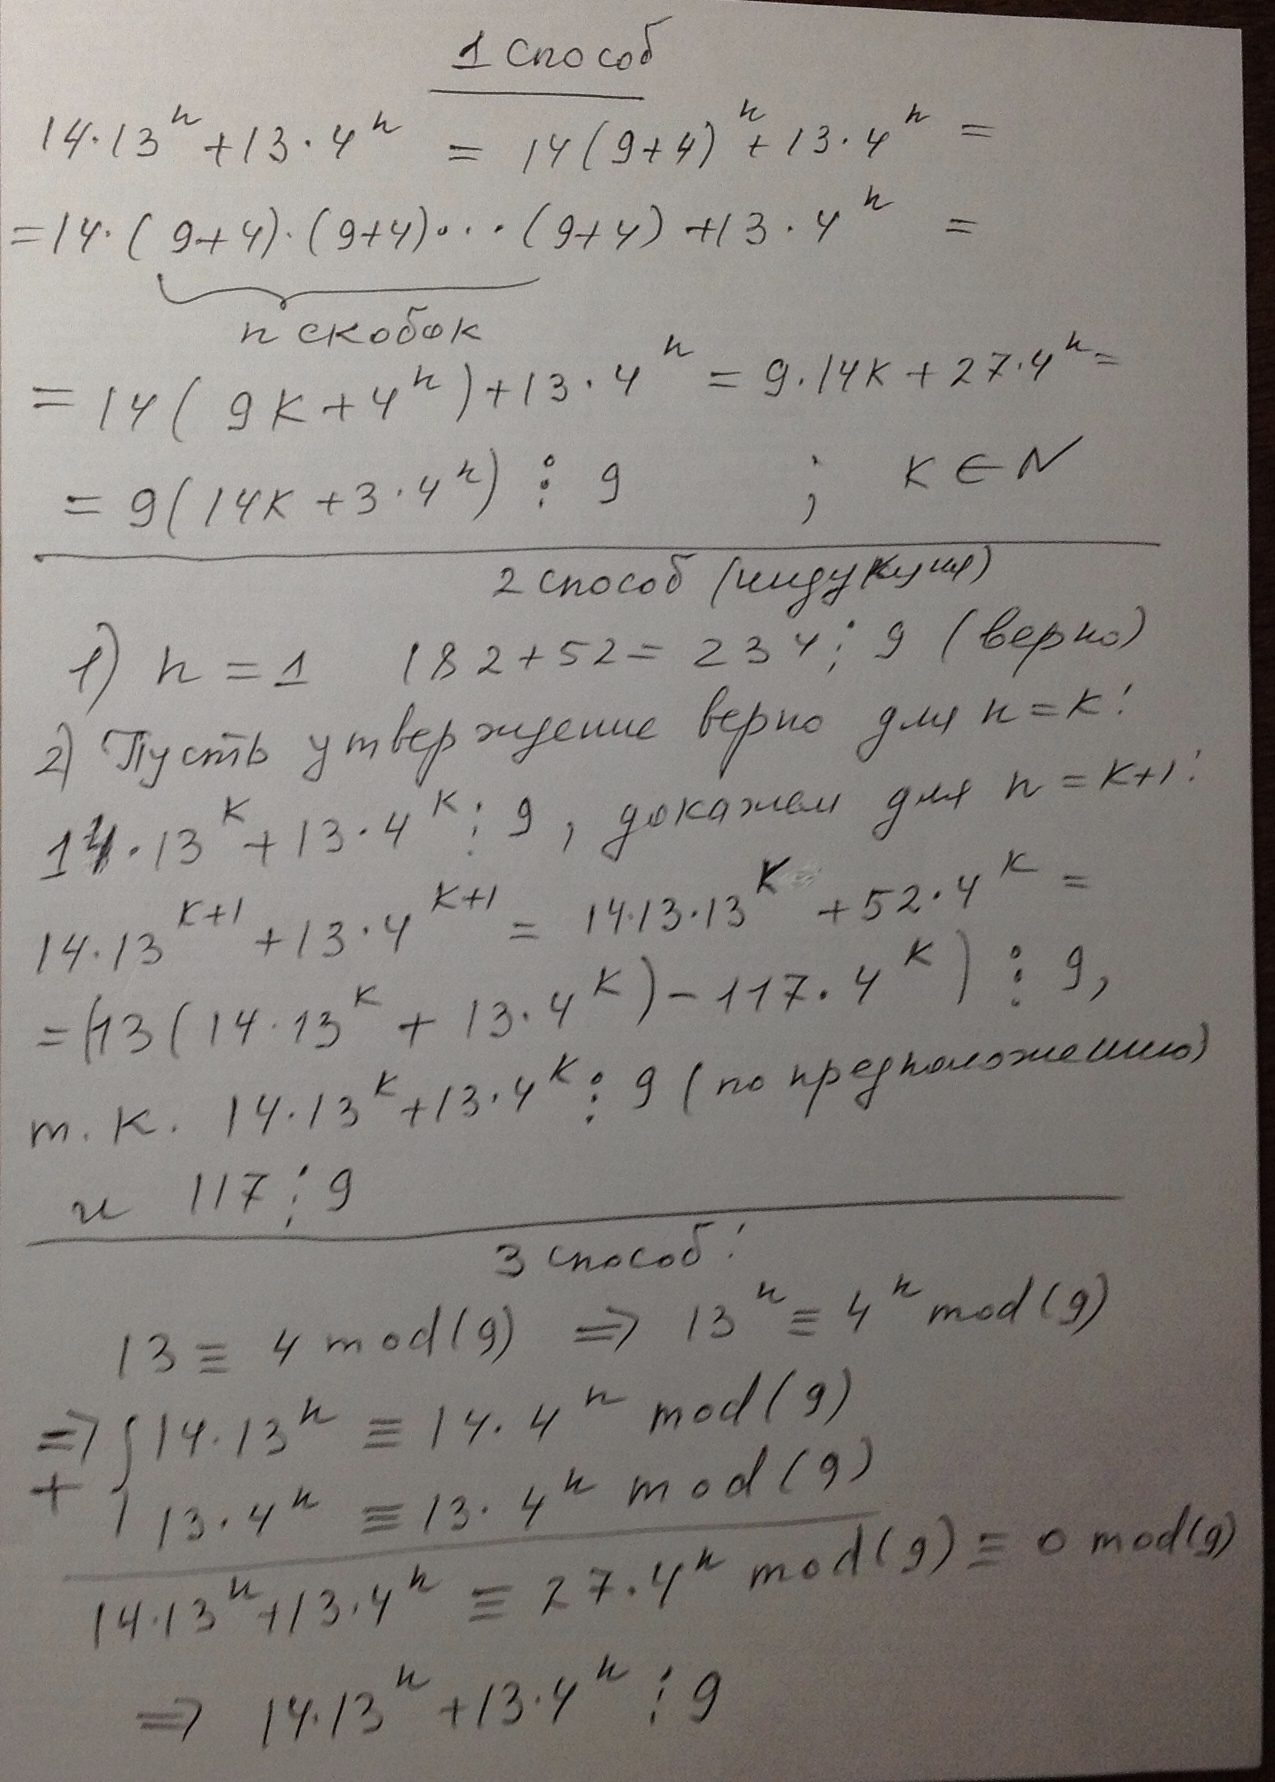 1 способ
14·13ⁿ+13·4ⁿ = 14(9+4)ⁿ+13·4ⁿ =
=14·(9+4)·(9+4)···(9+4)+13·4ⁿ =
n скобок
=14(9k+4ⁿ)+13·4ⁿ=9·14k+27·4ⁿ=
=9(14k+3·4ⁿ)⋮9 ; k∈N
2 способ (индукция)
1) n=1 182+52=234⋮9 (верно)
2) Пусть утверждение верно для n=k:
14·13ᵏ+13·4ᵏ⋮9, докажем для n=k+1:
14·13ᵏ⁺¹+13·4ᵏ⁺¹=14·13·13ᵏ+52·4ᵏ=
=(13(14·13ᵏ+13·4ᵏ)-117·4ᵏ)⋮9,
т.к. 14·13ᵏ+13·4ᵏ⋮9 (по предположению)
и 117⋮9
3 способ:
13≡4 mod(9) ⇒ 13ⁿ≡4ⁿ mod(9)
⇒ { 14·13ⁿ≡14·4ⁿ mod(9)
+ 13·4ⁿ≡13·4ⁿ mod(9)
14·13ⁿ+13·4ⁿ≡27·4ⁿ mod(9)≡0 mod(9)
⇒ 14·13ⁿ+13·4ⁿ⋮9